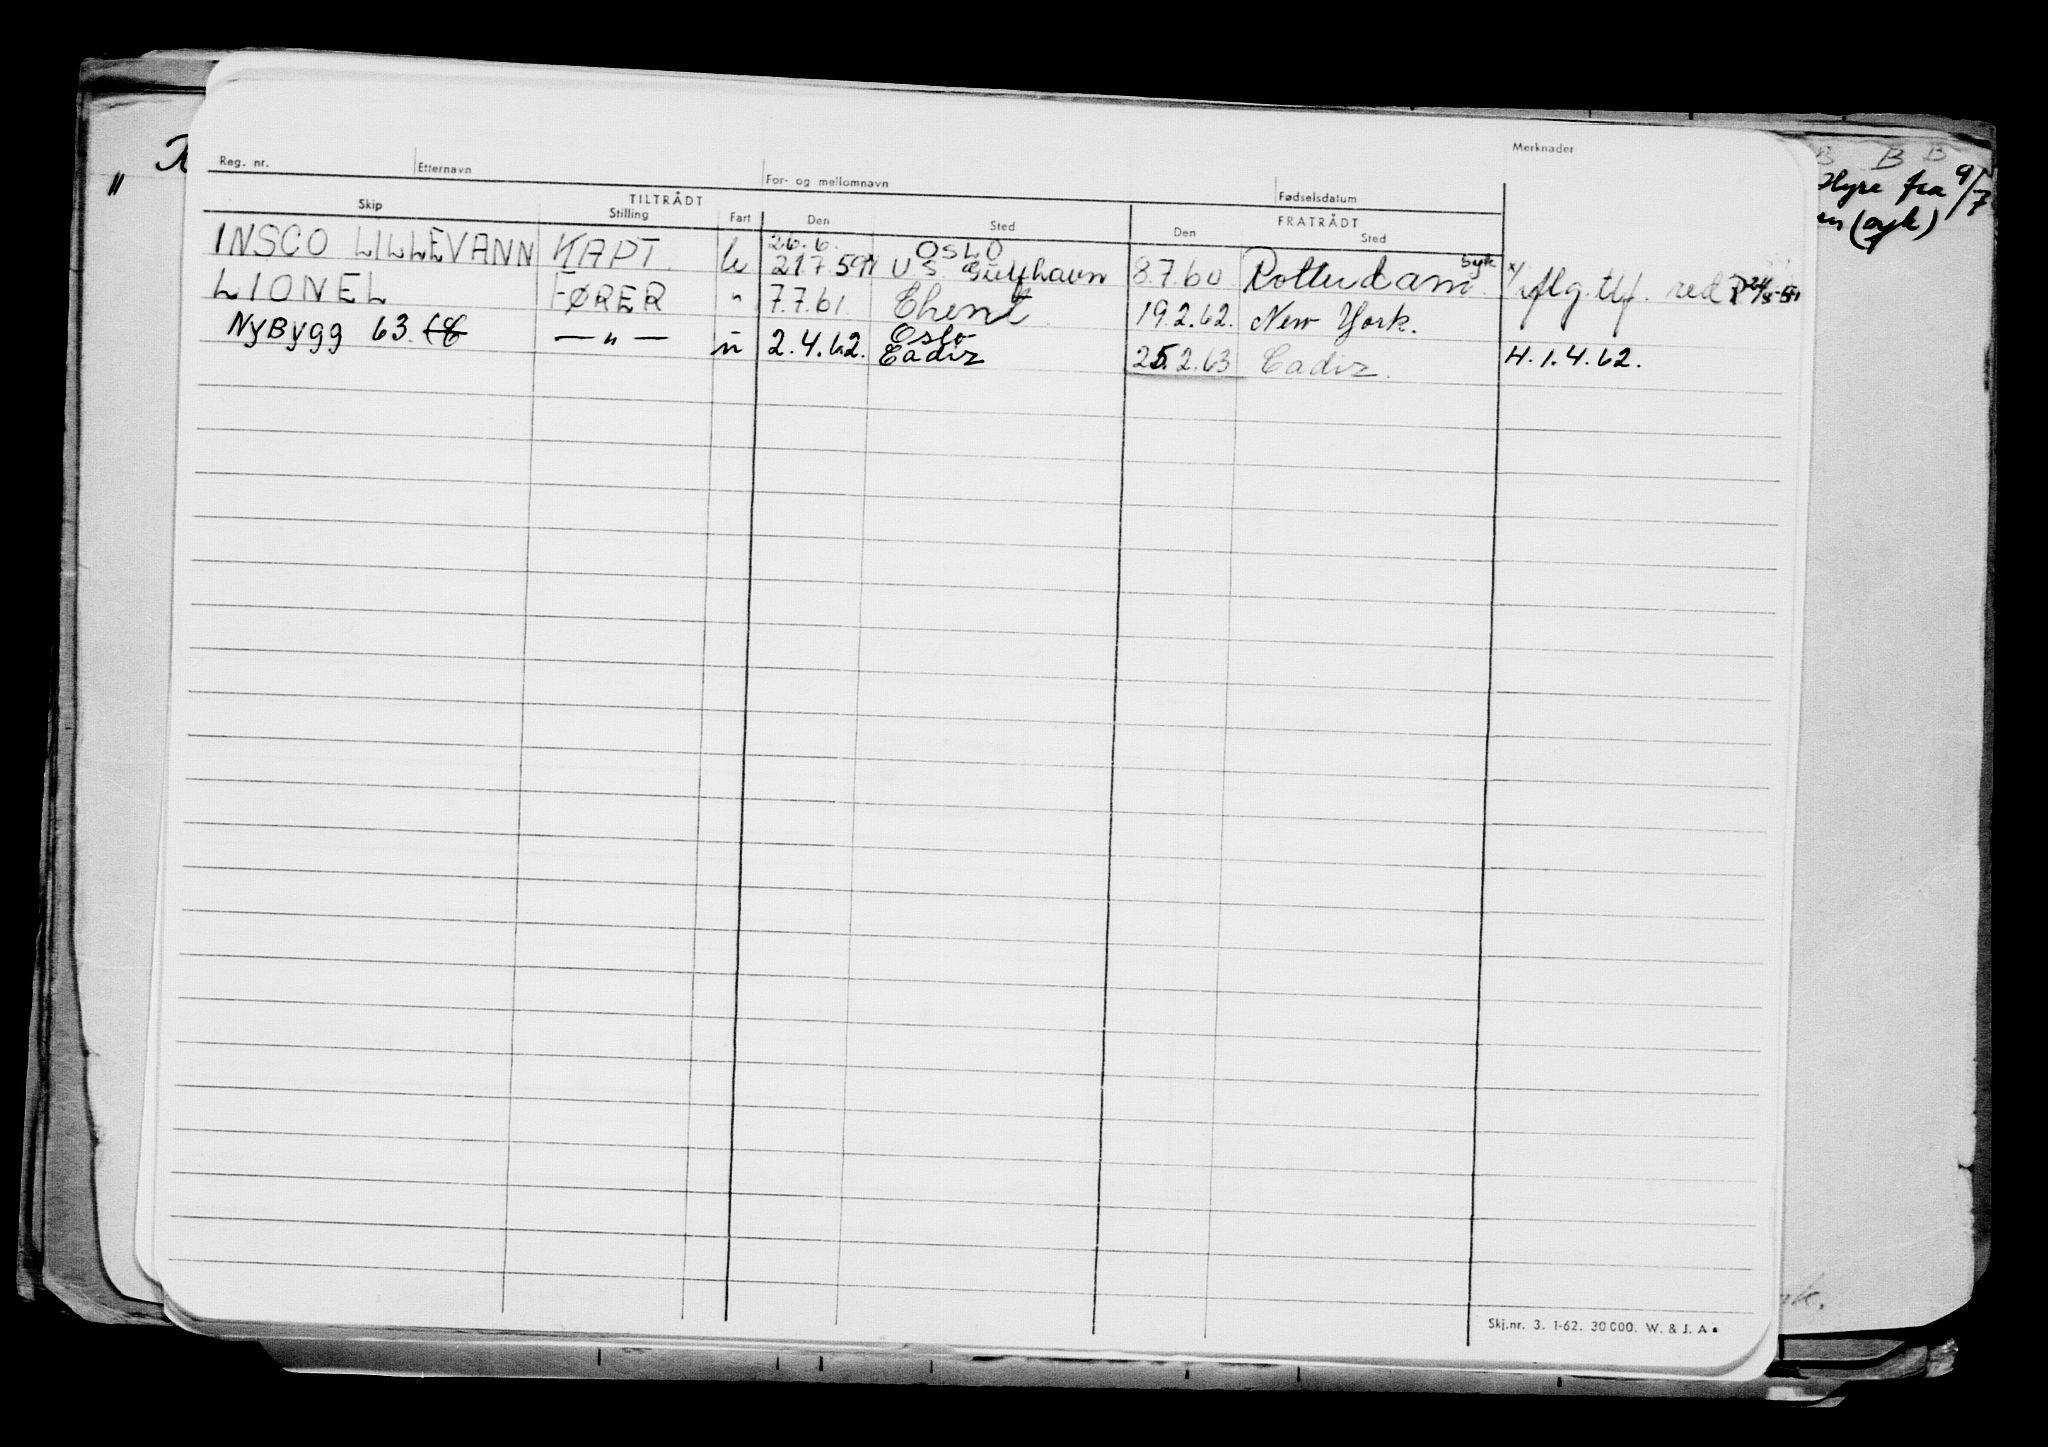 Merknader
Reg. nr. Etternavn For- og mellomnavn Fødselsdatum
TILTRÅDT FRATRÅDT
Skip Stilling Fart Den Sted Den Sted
26.6. OSLO
INSCO LILLEVANN KAPT. u 21.7.59 U.S. Gulfhavn 8.7.60 Rotterdam. syk x/ iflg. tlf. red
LIONEL FØRER " 7.7.61 Ghent 19.2.62. New York.
Oslo
NyBygg 63. — " — " 2.4.62. Cadiz 25.2.63 Cadiz. H. 1.4.62.
Skj.nr. 3. 1-62. 30 000. W. & J. A s
B B B
Hyre fra 9/7
(syk)
"